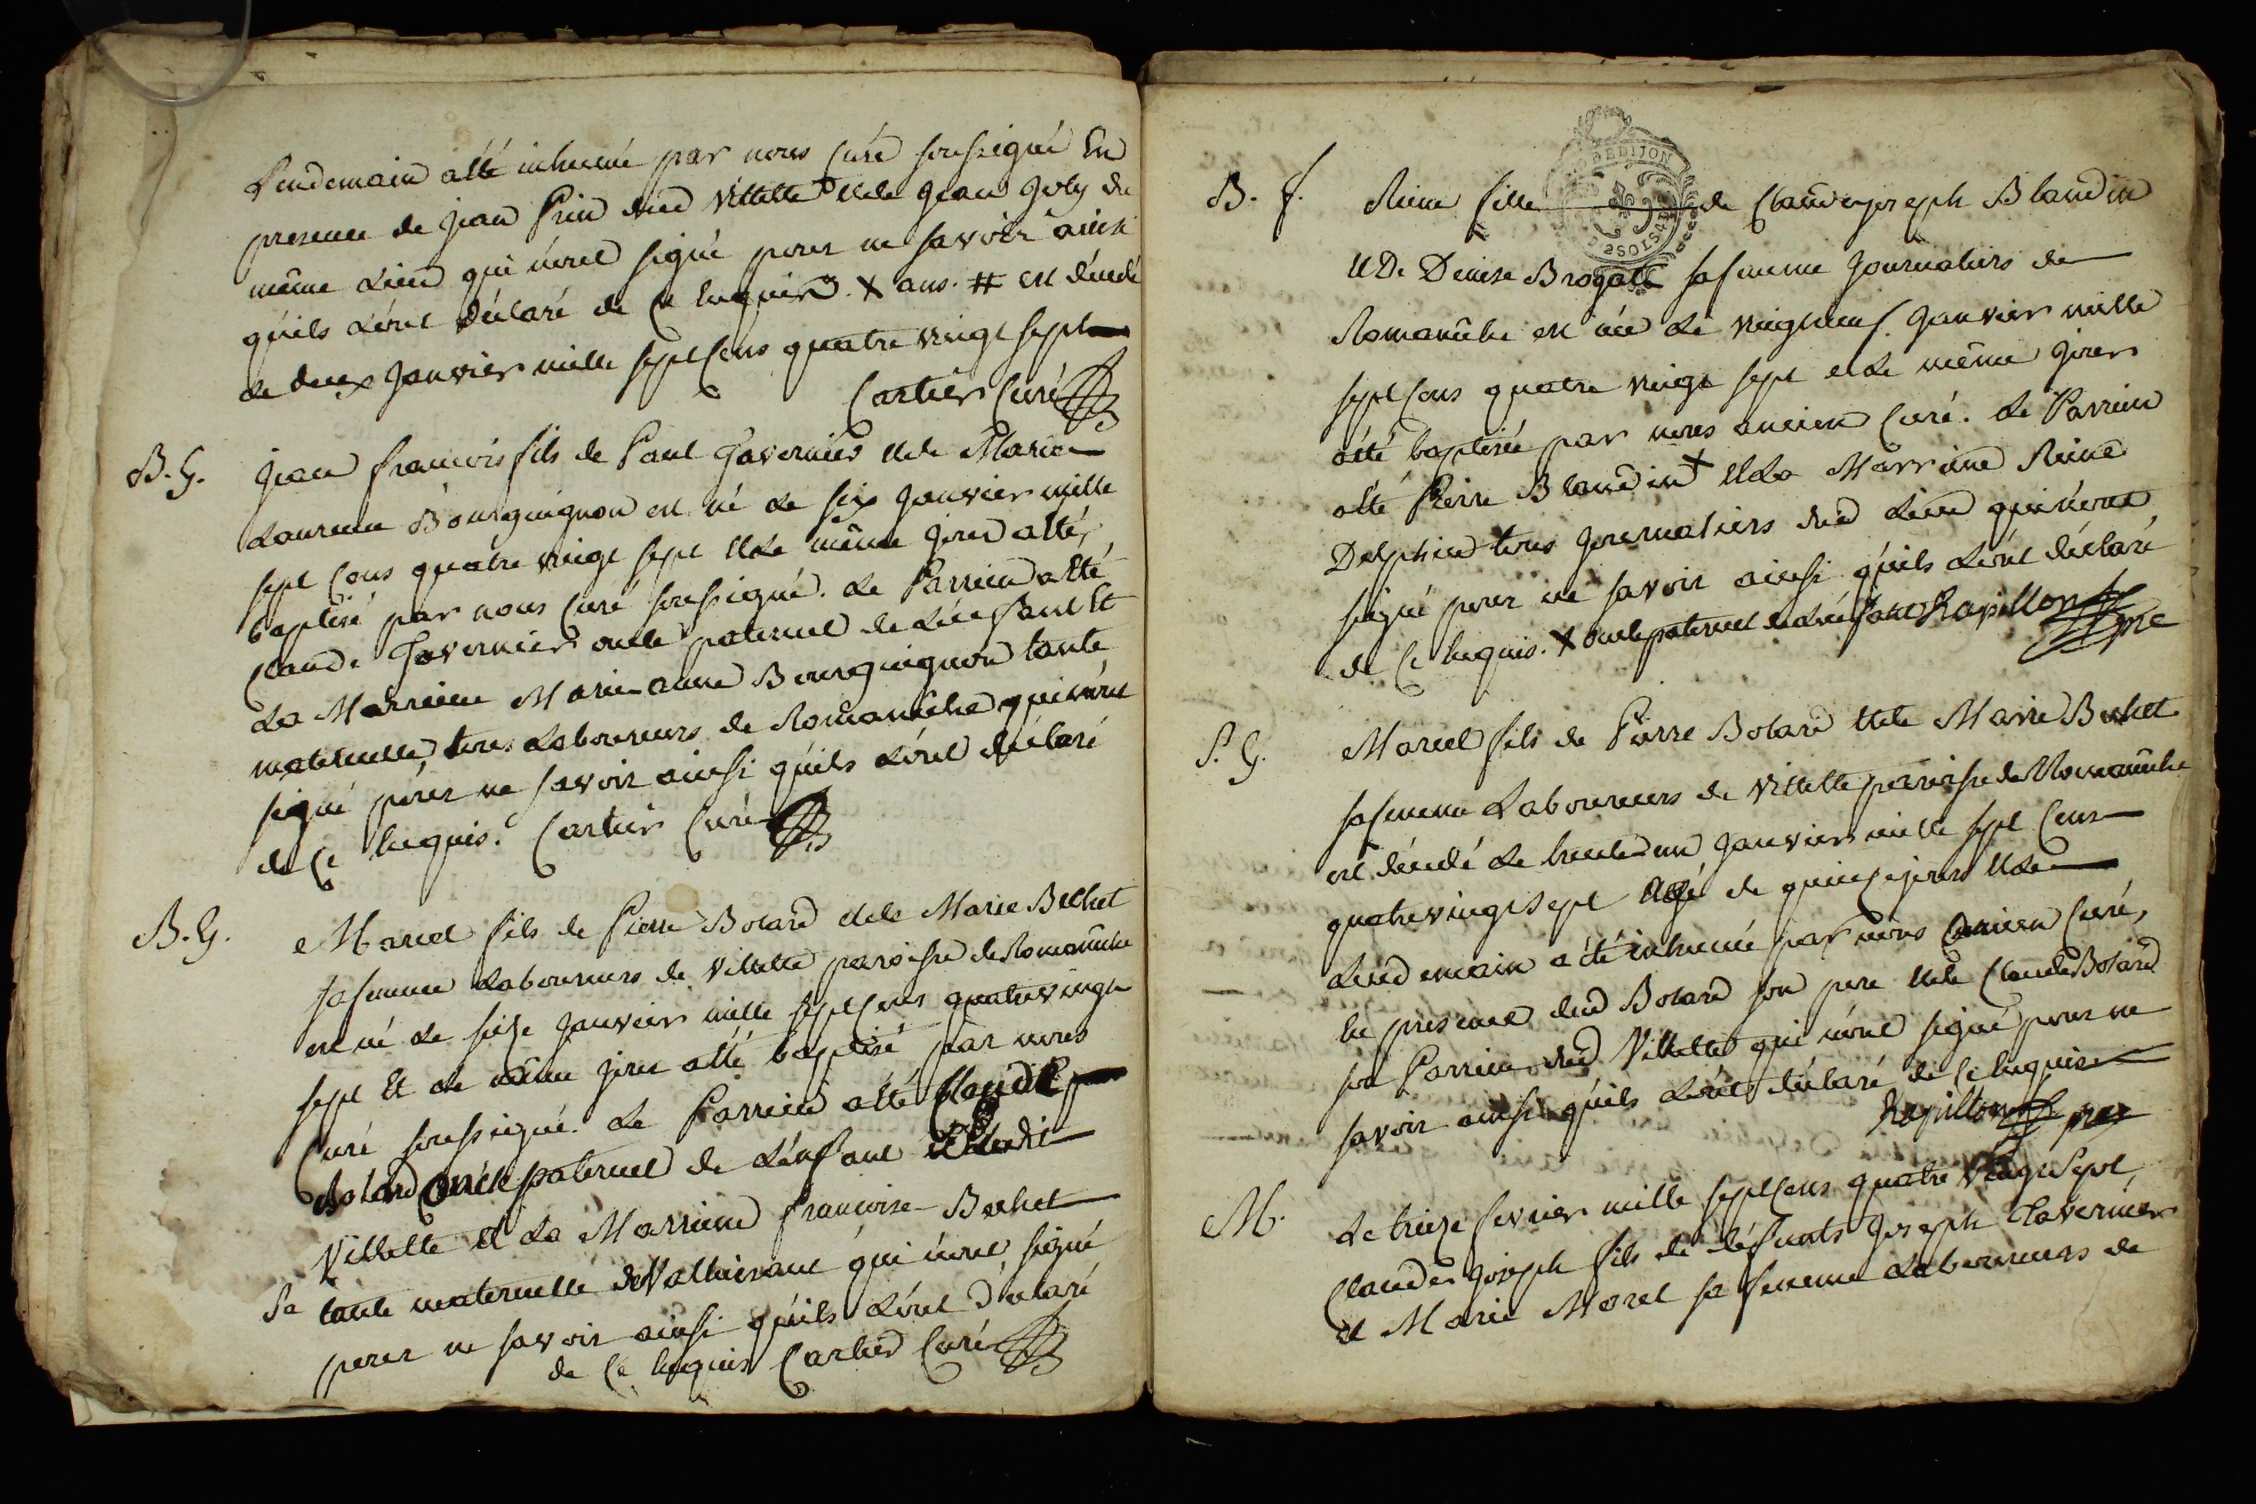 Lendemain a été inhumé par nous Curé soussigné En
presence de Jean Prin dud Villette et de Jean Joly du
même Lieu qui n'ont signé pour ne savoir ainsi
qu'ils L'ont déclaré de Ce Enquis. X ans. # est décédé
de deux Janvier mille sept Cens quatre vingt sept
Cartier Curé
B. G. Jean francois fils de Paul Tavernier et de Marie
Laurence Bourguignon est né Le six Janvier mille
sept Cens quatre vingt sept et Le même jour a été
baptisé par nous Curé soussigné. Le Parrein a été
Claude Tavernier oncle paternel de L'enfant Et
La Marreine Marie anne Bourguignon tante
maternelle, tous Laboureurs de Romanêche qui n'ont
signé pour ne savoir ainsi qu'ils L'ont déclaré
de Ce Enquis. Cartier Curé
B. G. Marcel fils de Pierre Bolard et de Marie Bechet
sa femme Laboureurs de Villette paroisse de Romanêche
est né Le seize Janvier mille sept Cens quatre vingt
sept Et Le même jour a été baptisé par nous
Curé soussigné. Le Parrein a été Claude
Bolard oncle paternel de L'enfant dudit
Villette et La Marreine francoise Bechet
sa tante maternelle de qui n'ont signé
pour ne savoir ainsi qu'ils L'ont déclaré
de Ce Enquis Cartier Curé
DEDIJON
B. f. Reine fille de Claude joseph Blandin
et De Denise Brogatt sa femme Journaliers de
Romanêche est née Le vingt neuf Janvier mille
sept Cens quatre vingt sept et Le même jour
a été baptisée par nous ancien Curé. Le Parrein
a été Pierre Blandin X et La Marreine Reine
Delphin tous Journaliers dud Lieu qui n'ont
signé pour ne savoir ainsi qu'ils L'ont déclaré
de Ce Enquis. X oncle paternel de L'enfant Rapillon ptre
S. G. Marcel fils de Pierre Bolard et de Marie Bechet
sa femme Laboureurs de Villette paroisse de Romanêche
est décédé Le trente un Janvier mille sept Cens
quatre vingt sept agé de quinze jours et Le
Lendemain a été inhumé par nous ancien Curé,
En presence dud Bolard son pere et de Claude Bolard
son Parrein dud Villette qui n'ont signé pour ne
savoir ainsi qu'ils L'ont déclaré de Ce Enquis
Rapillon ptre
M. Le treize fevrier mille sept Cens quatre Vingt Sept,
Claude Joseph fils de défunts Joseph Tavernier
et Marie Morel sa femme Laboureurs de